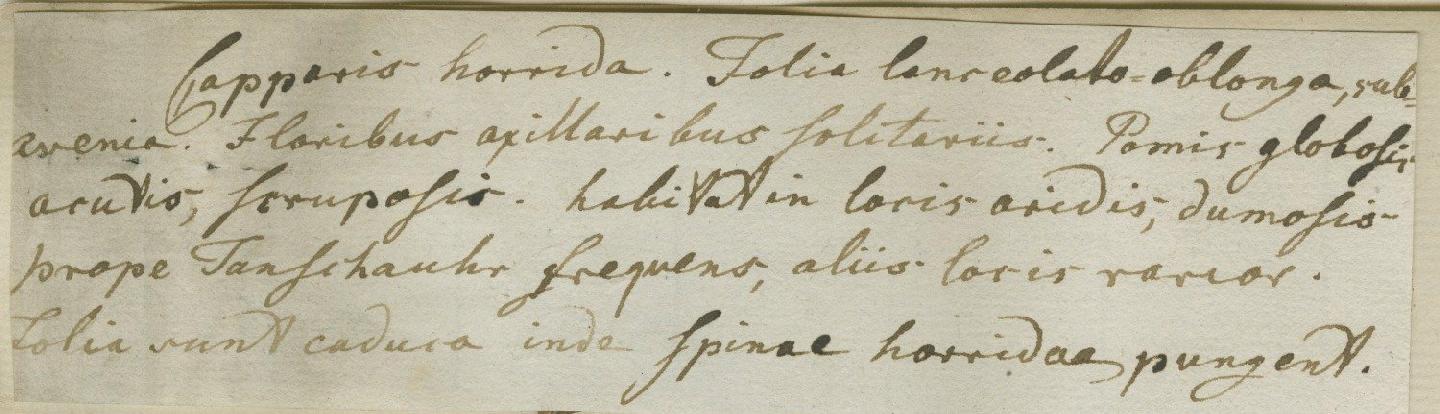 Capparis horrida. Folia lanceolato=oblonga, sub=
avenia. Floribus axillaribus solitariis. Pomis globosis
acutis, scruposis. habitat in locis aridis, dumosis
prope Tanschauhr frequens, aliis locis rarior.
Folia sunt caduca inde spinae horridae pungent.